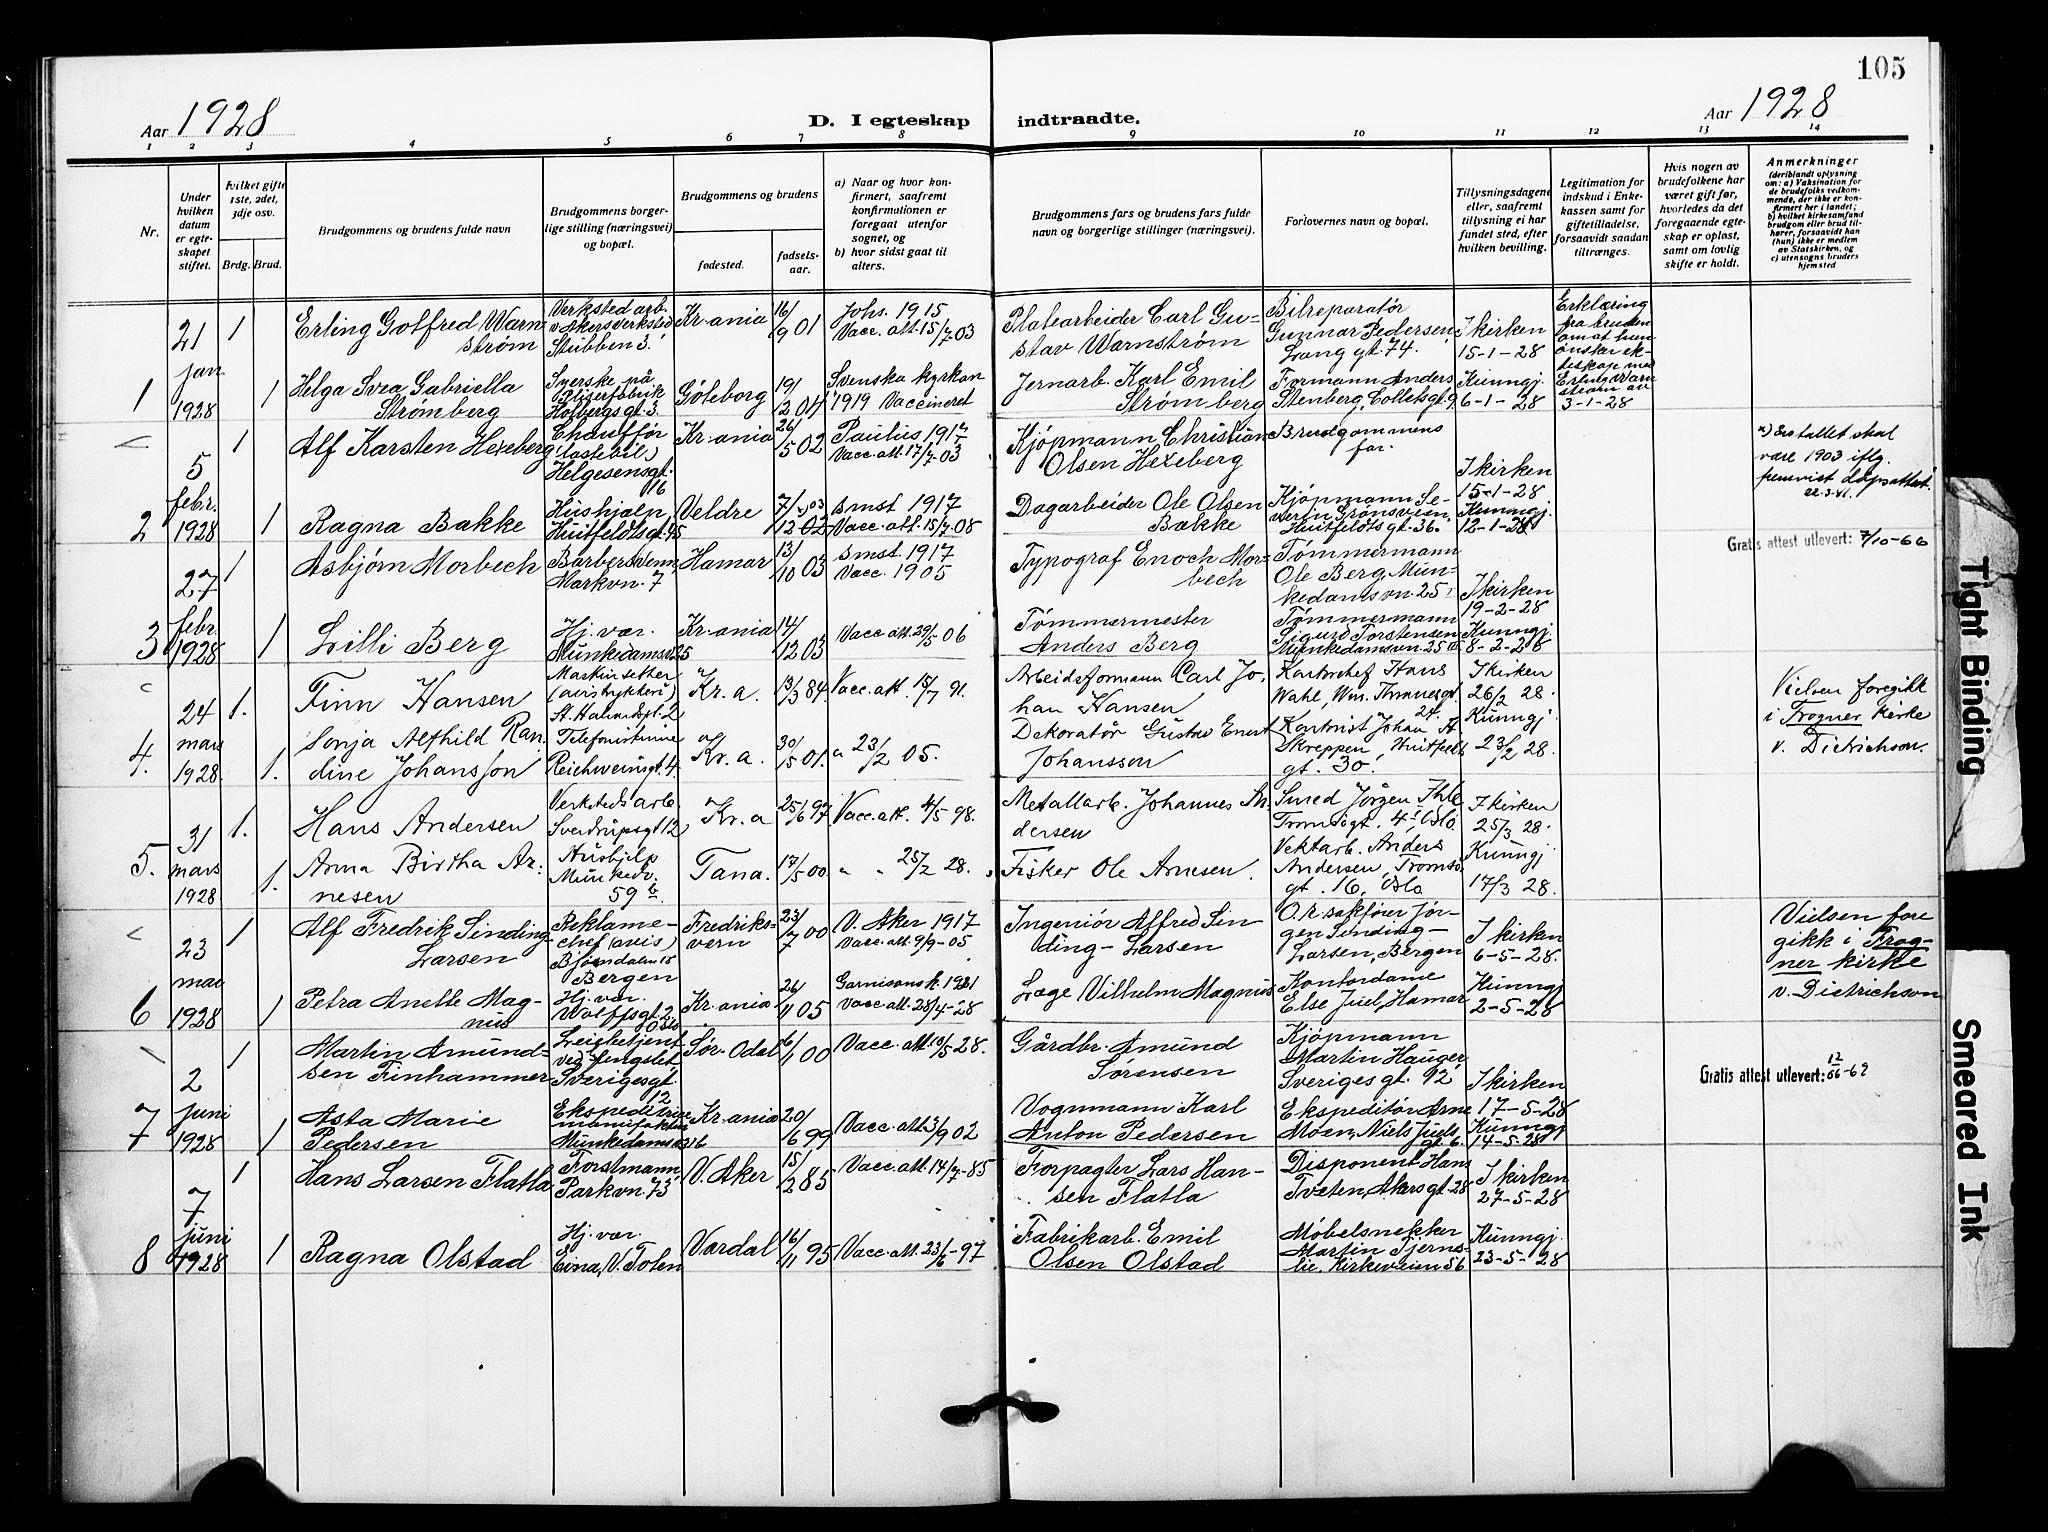 105
Aar 1928
D. I egteskap indtraadte.
Aar 1928
1 2 3 4 5 6 7 8 9 10 11 12 13 14
Nr.
Under
hvilken
datum
er egte-
skapet
stiftet.
Hvilket gifte
1ste, 2det,
3dje osv.
Brdg. Brud.
Brudgommens og brudens fulde navn
Brudgommens borger-
lige stilling (næringsvei)
og bopæl.
Brudgommens og brudens
fødested.
fødsels-
aar.
a) Naar og hvor kon-
firmert, saafremt
konfirmationen er
foregaat utenfor
sognet, og
b) hvor sidst gaat til
alters.
Brudgommens fars og brudens fars fulde
navn og borgerlige stillinger (næringsvei).
Forlovernes navn og bopæl.
Tillysningsdagene
eller, saafremt
tillysning ei har
fundet sted, efter
hvilken bevilling.
Legitimation for
indskud i Enke-
kassen samt for
giftetilladelse,
forsaavidt saadan
tiltrænges.
Hvis nogen av
brudefolkene har
været gift før,
hvorledes da det
foregaaende egte-
skap er opløst,
samt om lovlig
skifte er holdt.
Anmerkninger
(deriblandt oplysning
om: a) Vaksination for
de brudefolks vedkom-
mende, der ikke er kon-
firmert her i landet;
b) hvilket kirkesamfund
brudgom eller brud til-
hører, forsaavidt han
(hun) ikke er medlem
av Statskirken, og
c) utensogns bruders
hjemsted
1
21
jan
1928
1
Erling Gotfred Warn-
strøm
Verksted arb.
v. Akers verksted
Stubben 3.
Kr.ania
16/9 01
Johs. 1915
Vacc. att. 15/7-03
Platearbeider Carl Gu-
stav Warnstrøm
Bilreparatør
Gunnar Pedersen,
Lang gt. 74.
I kirken
15-1-28
Erklæring
fra bruden
om at hun
ønsker ek-
teskap med
Erling Warn
strøm av
3-1-28
1
Helga Svea Gabriella
Strømberg
Syerske på
Holbergs gt. 3.
Göteborg
19/2 04
Svenska kyrkan
1919 Vaccineret
Jernarb. Karl Emil
Strømberg
Formann Anders
Stenberg, Colletsgt. 9
Kunngj.
6-1-28
2
5
febr.
1928
1
Alf Karsten Hexeberg
Chauffør
(lastebil)
Helgesensgt.
16
Kr.ania
26/5 02
Paulus 1917
Vacc. att. 17/7-03
Kjøpmann Christian
Olsen Hexeberg
Brudgommens
far.
I kirken
15-1-28
x) Års tallet skal
være 1903 iflg.
fremvist dåpsattest.
22.3.41.
1
Ragna Bakke
Hushjelp,
Huitfeldtsgt. 45
Veldre
7/12 02 x) 03
smst 1917
Vacc. att. 15/7-08
Dagarbeider Ole Olsen
Bakke
Kjøpmann Se-
verin Grønsveien,
Huitfeldts gt. 36.
Kunngj.
12-1-28
3
27
febr.
1928
1
Asbjørn Morbech
Barbersvenn,
Markvn. 7
Hamar
13/10 03
smst. 1917
Vacc. 1905
Typograf Enoch Mor-
bech
Tømmermann
Ole Berg, Mun-
kedamsvn. 25 I
I kirken
19-2-28
Gratis attest utlevert: 7/10-66
1
Lilli Berg
Hj. vær.
Munkedamsv. 25
Kr.ania
14/12 03
Vacc. att. 29/5-06
Tømmermester
Anders Berg
Tømmermann
Sigurd Torstensen
Munkedamsvn. 25 III
Kunngj.
8-2-28
4.
24
mars
1928
1.
Finn Hansen
Maskinsetter
(avistrykkeri)
St. Halvardsgt. 2
Kr.a.
13/3 84
Vacc. att. 15/7 91.
Arbeidsformann Carl Jo-
han Hansen
Kontorchef Hans
Wahl, Wm. Thranesgt.
24.
I kirken
26/2 28.
Vielsen foregikk
i Frogner kirke
v. Dietrichson.
1.
Sonja Alfhild Ran-
dine Johansson
Telefonistinne
Reichweinsgt. 4.
Kr.a.
30/5 01.
" 23/2 05.
Dekoratør Gustav Ernst
Johansson
Kontorist Johan A.
Skreppen, Huitfeldts
gt. 30.
Kunngj.
23/2 28.
5.
31
mars
1928
1.
Hans Andersen
Verksteds arb.
Sverdrupsgt. 12
Kr.a
25/6 97
Vacc. att. 4/5 98.
Metallarb. Johannes An-
dersen
Smed Jørgen Ihle
Tromsøgt. 4 I, Oslo.
I kirken
25/3 28.
1.
Anna Birtha Ar-
nesen
Hushjelp
Munkedv.
59 b
Tana.
17/5 00
" " 25/2 28.
Fisker Ole Arnesen.
Vektarb. Anders
Andersen, Tromsø
gt. 16, Oslo
Kunngj
17/3 28.
6
23
mai
1928
1
Alf Fredrik Sinding-
Larsen
Reklame-
chef (avis)
Bjørndalen 15
Bergen
Fredriks-
vern
23/7 00
V. Aker 1917
Vacc. att. 9/9-05
Ingeniør Alfred Sin
ding-Larsen
O.r. sakfører Jør-
gen Sinding-
Larsen, Bergen
I kirken
6-5-28.
Vielsen fore
gikk i Frog-
ner kirke
v. Dietrichson
1
Petra Anette Mag-
nus
Hj. vær.
Wolffsgt. 2
Oslo
Kr.ania
26/11 05
Garnisonsk. 1921
Vacc. att. 28/4-28
Læge Vilhelm Magnus
Kontordame
Else Juel, Hamar
Kunngj
2-5-28
7
2
juni
1928
1
Martin Amund-
sen Finhammer
ved fengslet,
Sverigesgt.
12
Sør-Odal
6/1 00
Vacc. att. 10/5 28.
Gårdbr. Amund
Sørensen
Kjøpmann
Martin Hauger
Sveriges gt. 92
I kirken
17-5-28
Gratis attest utlevert: 12/06-69
1
Asta Marie
Pedersen
Ekspeditrise
manufaktur
Munkedamsv. 16
Kr.ania
20/6 99
Vacc. att. 3/9 02
Vognmann Karl
Anton Pedersen
Ekspeditør Arne
Moen, Niels Juels
gt. 6.
Kunngj
14-5-28
8
7
juni
1928
1
Hans Larsen Flatla
Forstmann,
Parkvn. 73
V. Aker
15/2 85
Vacc. att. 14/7-85
Forpagter Lars Han-
sen Flatla
Disponent Hans
Tveten, Akersgt. 28
I kirken
27-5-28
1
Ragna Olstad
Hj. vær.
Eina, V. Toten
Vardal
16/11 95
Vacc. att. 23/6-97
Fabrikarb. Emil
Olsen Olstad
Møbelsnekker
Martin Tjerns-
lie, Kirkeveien 56
Kunngj.
23-5-28
Tight Binding
Smeared Ink